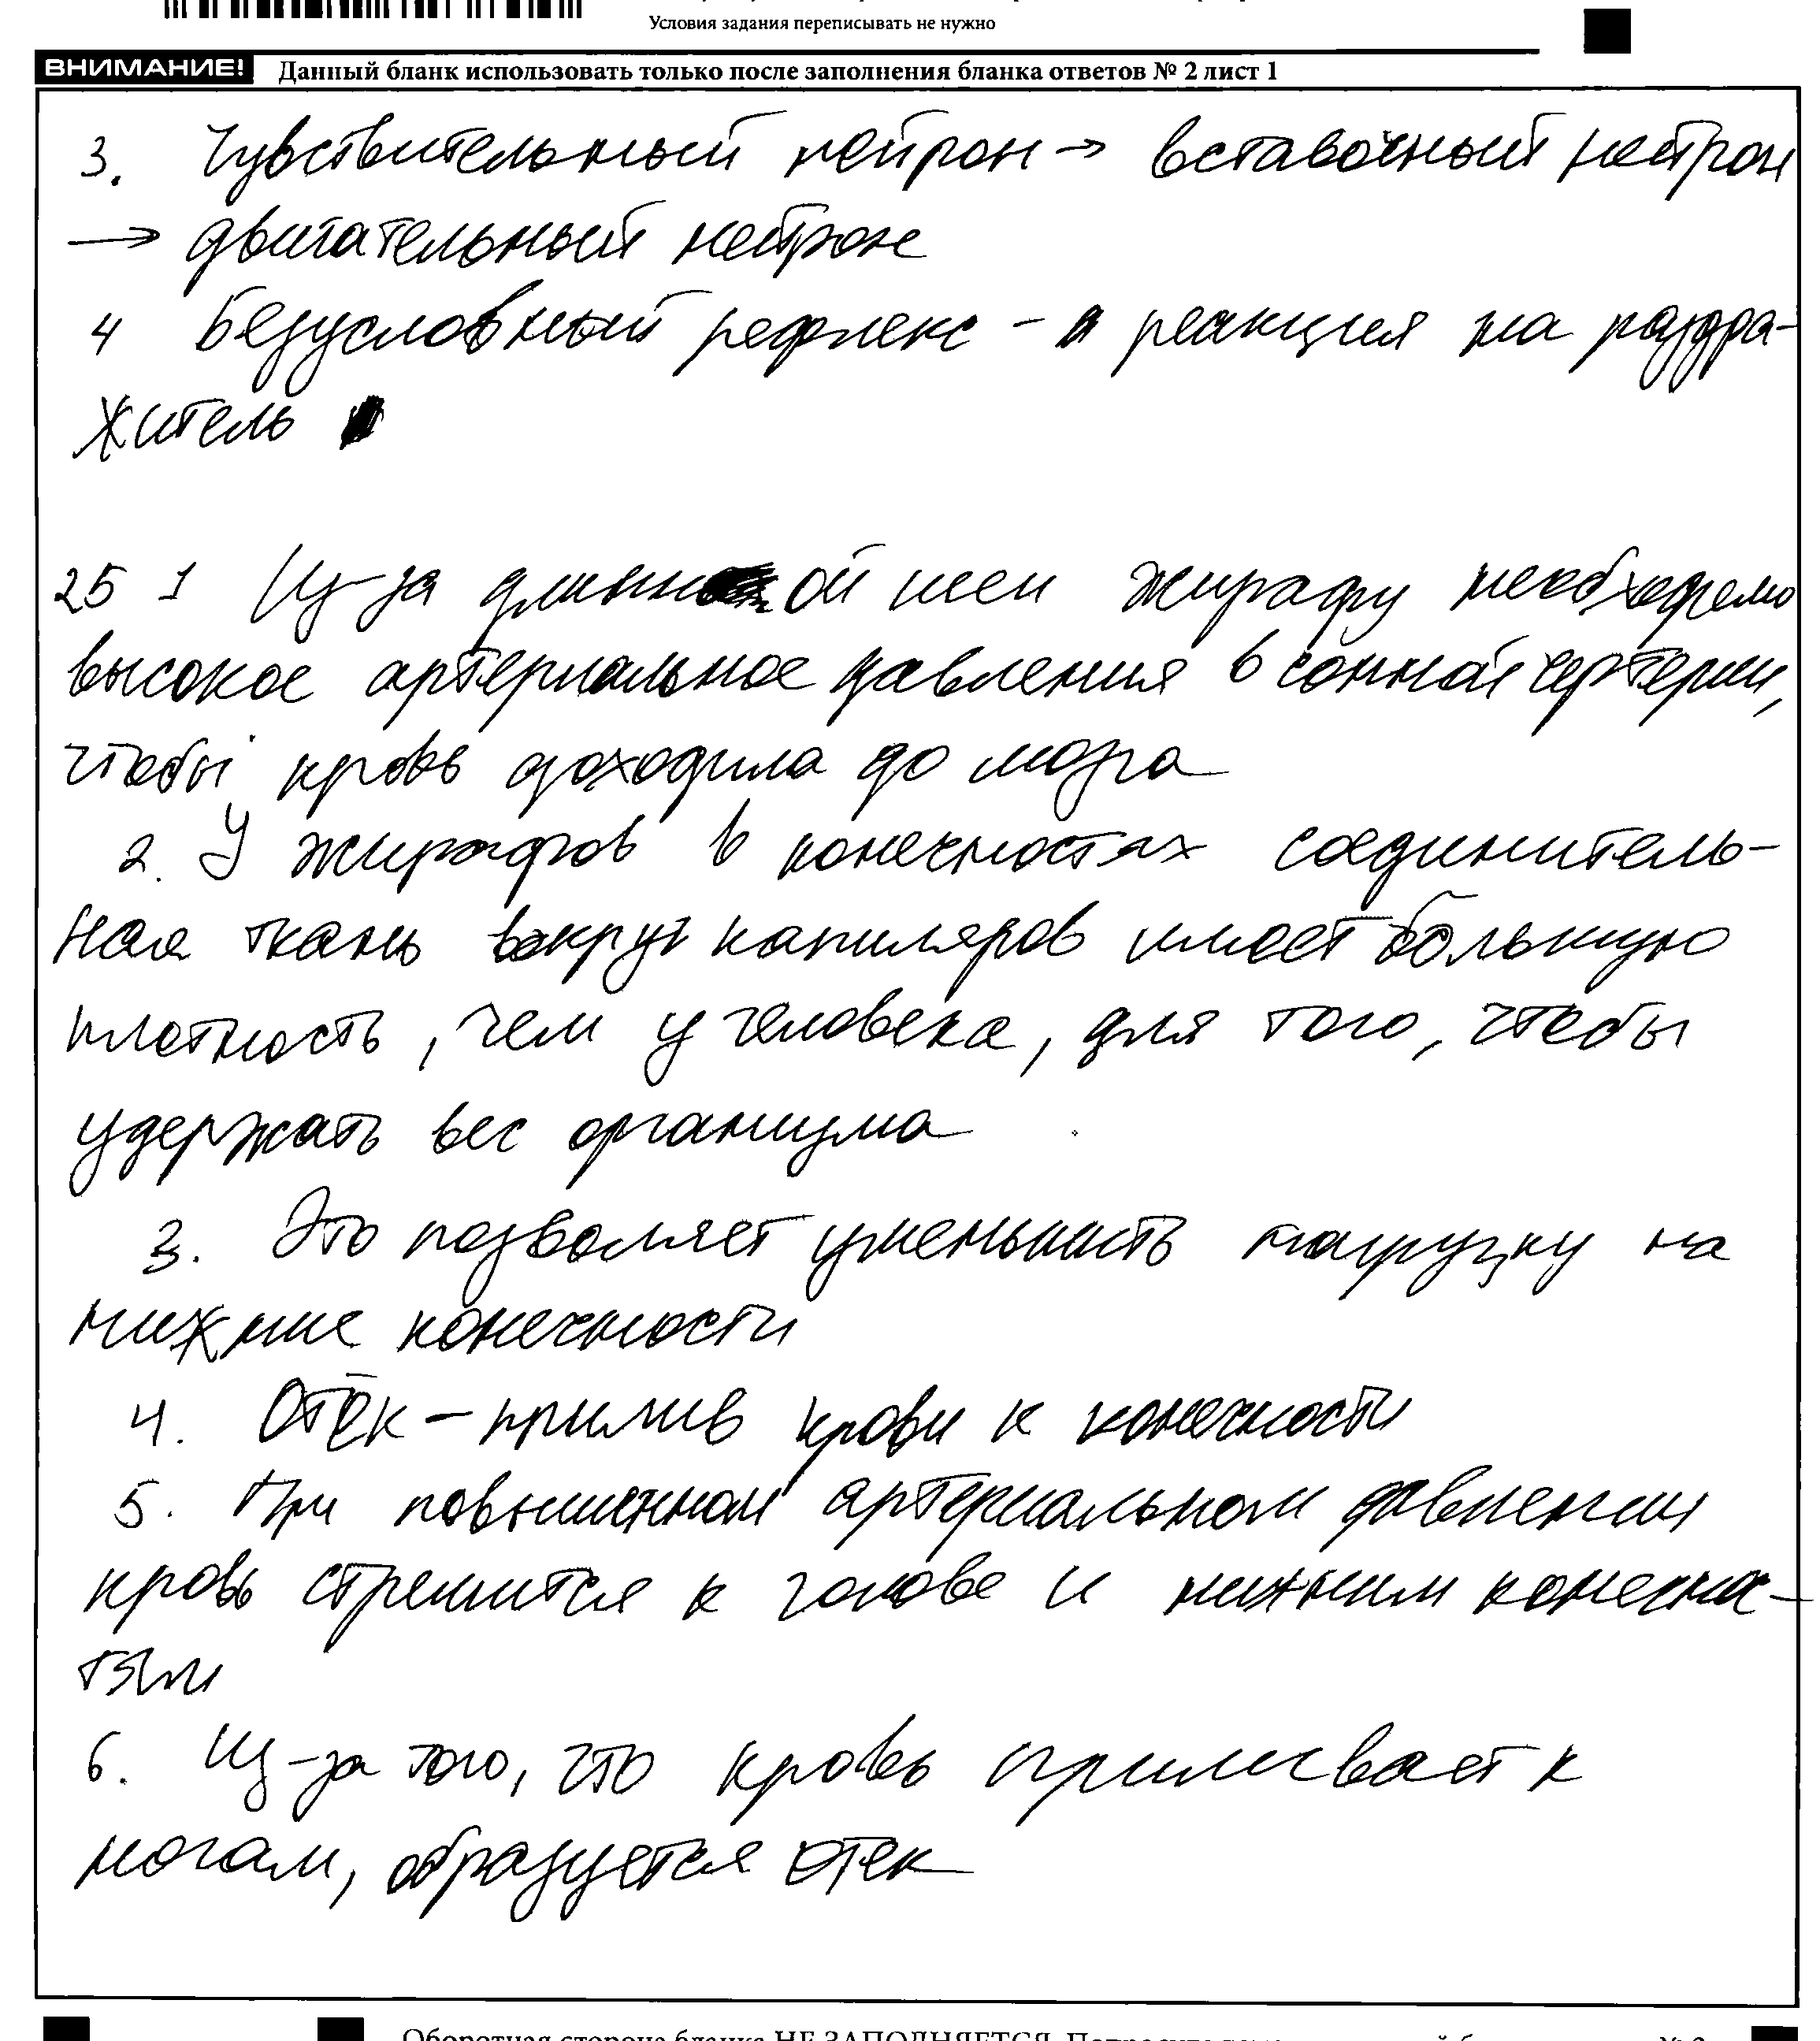 Условия задания переписывать не нужно
ВНИМАНИЕ! Данный бланк использовать только после заполнения бланка ответов № 2 лист 1
3. Чувствительный нейрон → вставочный нейрон
→ двигательный нейрон
4 Безусловный рефлекс - реакция на раздра-
житель
25 1 Из-за длинной шеи жирафу необходимо
высокое артериальное давления в сонной артерии,
чтобы кровь доходила до мозга
2. У жирафов в конечностях соединитель-
ная ткань вокруг капиляров имеет большую
плотность, чем у человека, для того, чтобы
удержать вес организма
3. Это позволяет уменьшить нагрузку на
нижние конечности
4. Отёк - прилив крови к конечности
5. При повышенном артериальном давлении
кровь стремится к голове и нижним конечнос-
тям
6. Из-за того, что кровь приливает к
ногам, образуется отек
Оборотная сторона бланка НЕ ЗАПОЛНЯЕТСЯ.